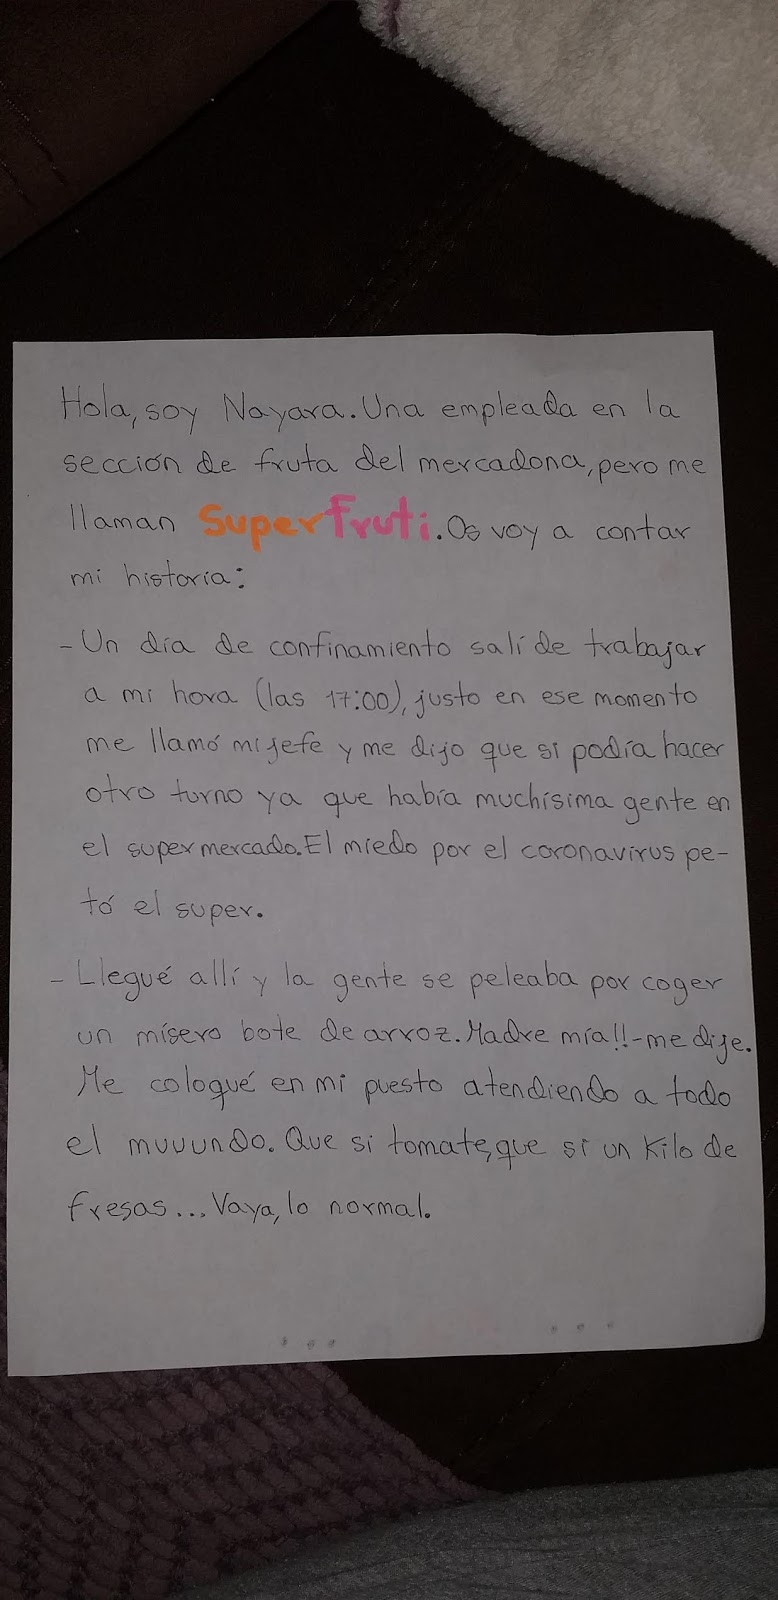 Hola, soy Nayara. Una empleada en la
sección de fruta del mercadona, pero me
llaman Superfruti. Os voy a contar
mi historia:
- Un día de confinamiento salí de trabajar
a mi hora (las 17:00), justo en ese momento
me llamó mi jefe y me dijo que si podía hacer
otro turno ya que había muchísima gente en
el supermercado. El miedo por el coronavirus pe-
tó el super.
- Llegué allí y la gente se peleaba por coger
un mísero bote de arroz. Madre mía!!-me dije.
Me coloqué en mi puesto atendiendo a todo
el muuundo. Que si tomate, que si un kilo de
fresas... Vaya, lo normal.